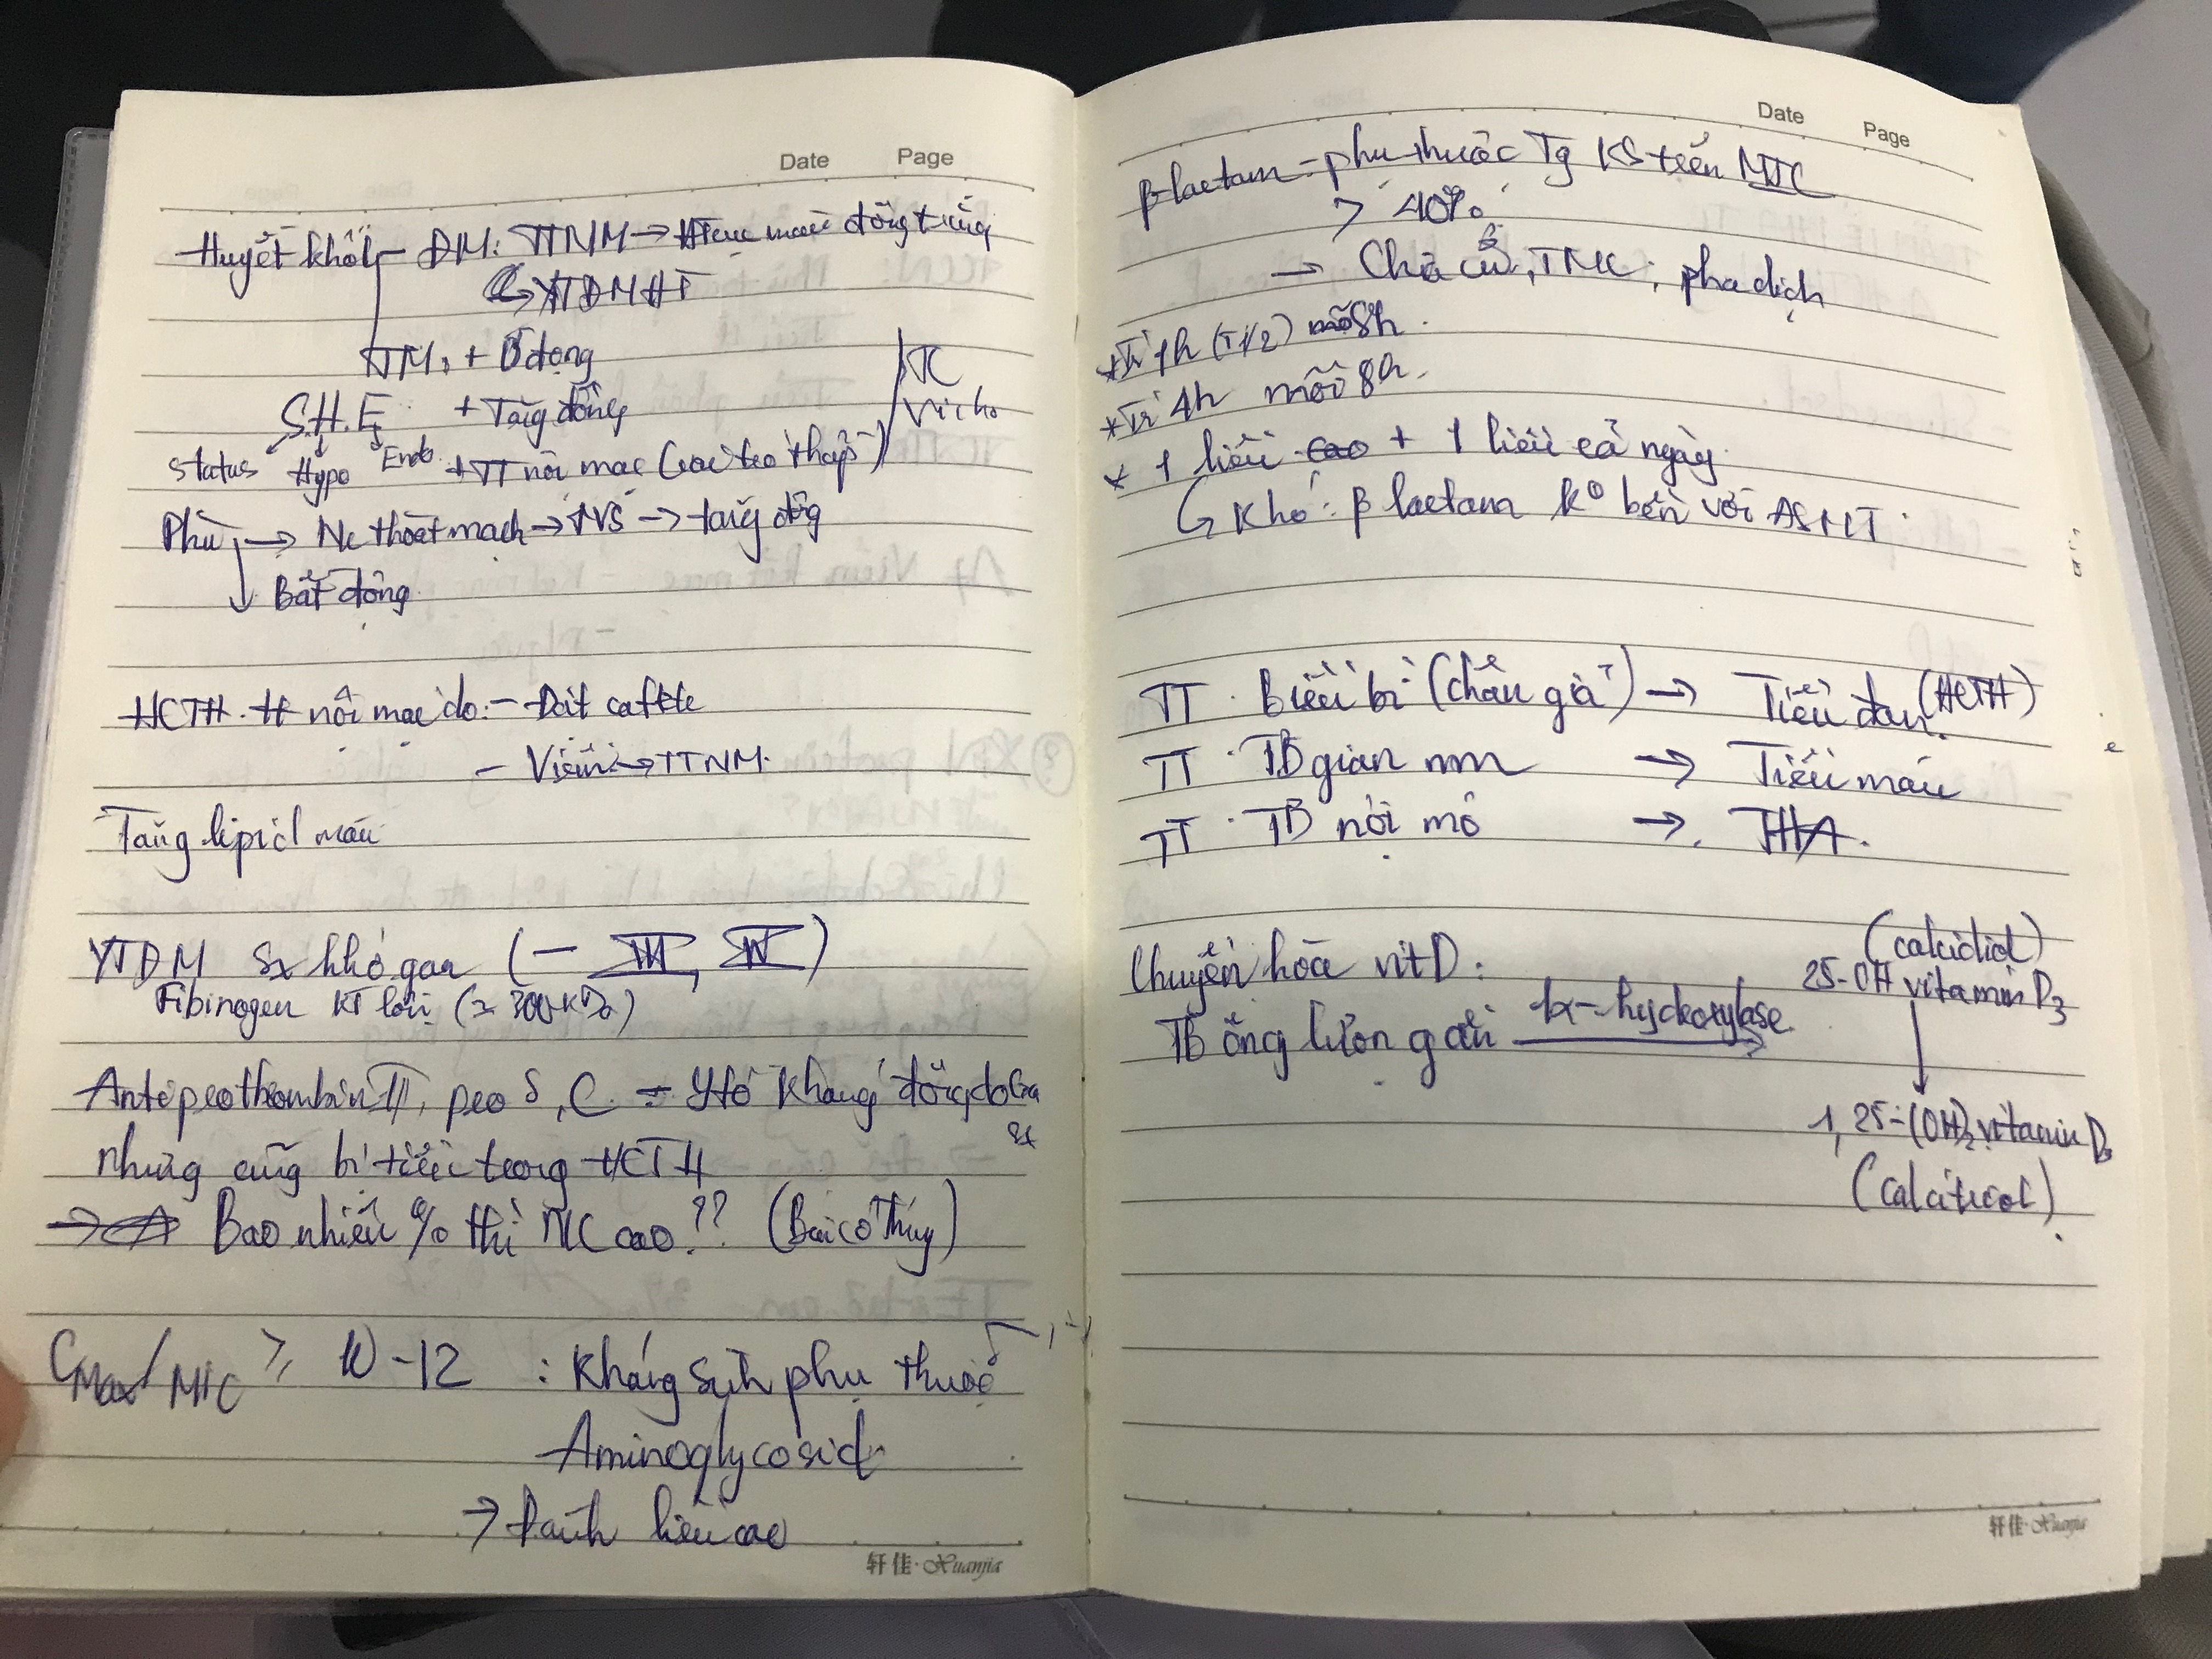 Date Page
Huyết khối - ĐM: TTNM → đông
YTĐMHT
TM: + Ứ đọng
S.H.E + Tăng đông
status Hypo Endo + TT nội mạc
TC
Phù → Nc thoát mạch → → tăng đông
Bất động
HCTH. tt nội mạc do: - Đặt catete
- Viêm → TTNM.
Tăng lipid máu
YTĐM Sx khỏi gan (- )
Fibinogen KT lớn
Antiprothombin III, pro S, C = kháng đông do Gan
sx
nhưng cũng bị tiểu trong HCTH
→ Bao nhiêu % thì NC cao?? (Bài cô Thúy)
CMax/MIC ≥ 10 - 12 : Kháng sinh phụ thuộc
Aminoglycosid
→ Đánh liều cao
轩佳·Xuanjia
Date Page
β-lactam = phụ thuộc Tg KS trên MIC
> 40%
→ Chia cữ, TMC, pha dịch
* Tr 1h (T1/2) mỗi 8h.
* Tr 4h mỗi 8h.
* 1 liều cao + 1 liều cả ngày
Khó: β lactam k° bền với ASMT.
TT. Biểu bì (chân giả) → Tiểu đạm (HCTH)
TT. TB gian mm → Tiểu máu
TT. TB nội mô → THA.
Chuyển hóa vitD: (calcidiol)
25-OH vitamin D3
TB ống lượn gần 1α-hydroxylase
1,25-(OH)2 vitamin D3
(calcitriol)
轩佳·Xuanjia